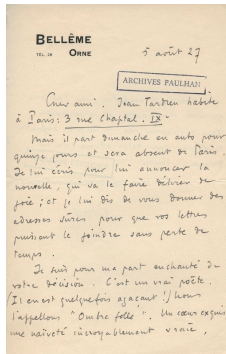 BELLÊME
TÉL. 28 ORNE
5 août 27
ARCHIVES PAULHAN
Cher ami. Jean Tardieu habite
à Paris : 3 rue Chaptal. IXe
Mais il part dimanche en auto pour
quinze jours et sera absent de Paris.
Je lui écris pour lui annoncer la
nouvelle, qui va le faire délirer de
joie, et je lui dis de vous donner des
adresses sûres pour que vos lettres
puissent le joindre sans perte de
temps.
Je suis pour ma part enchanté de
votre décision. C'est un vrai poète.
(Il en est quelquefois agaçant !) Nous
l'appellons "Ombre folle". Un cœur exquis
une naïveté incroyablement vraie.